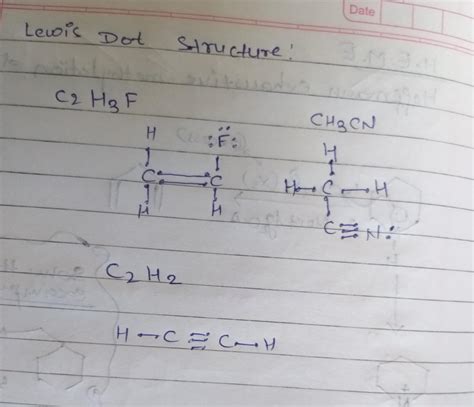 Date
Lewis Dot Structure:
C2 H3 F
CH3CN
H :F:
C C
H H
H
H C H
C N:
C2 H2
H - C ≡ C - H